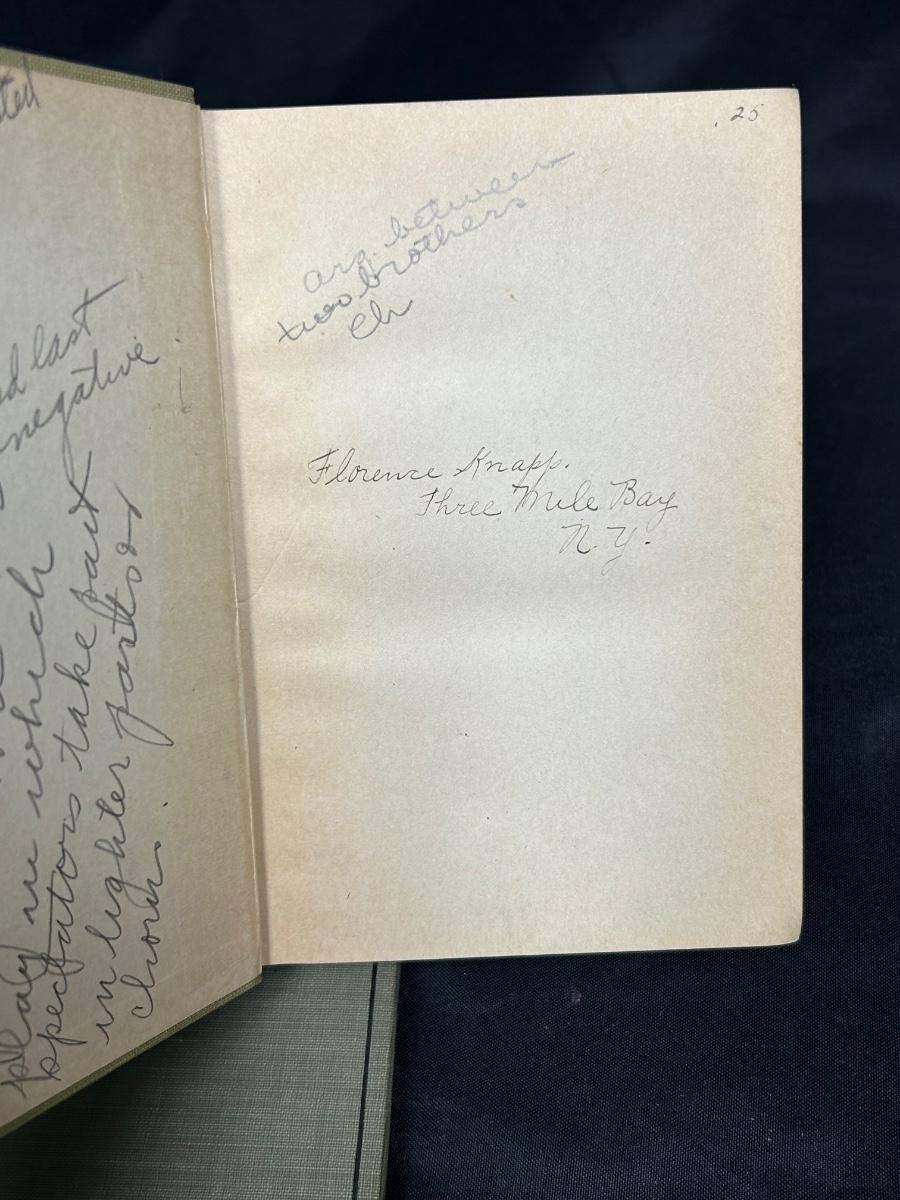 ted
d last
negative
play in which
spectators take part
in lighter parts or
chorus.
. 25
arg. between
two brothers
Ch
Florence Knapp.
Three Mile Bay
N. Y.